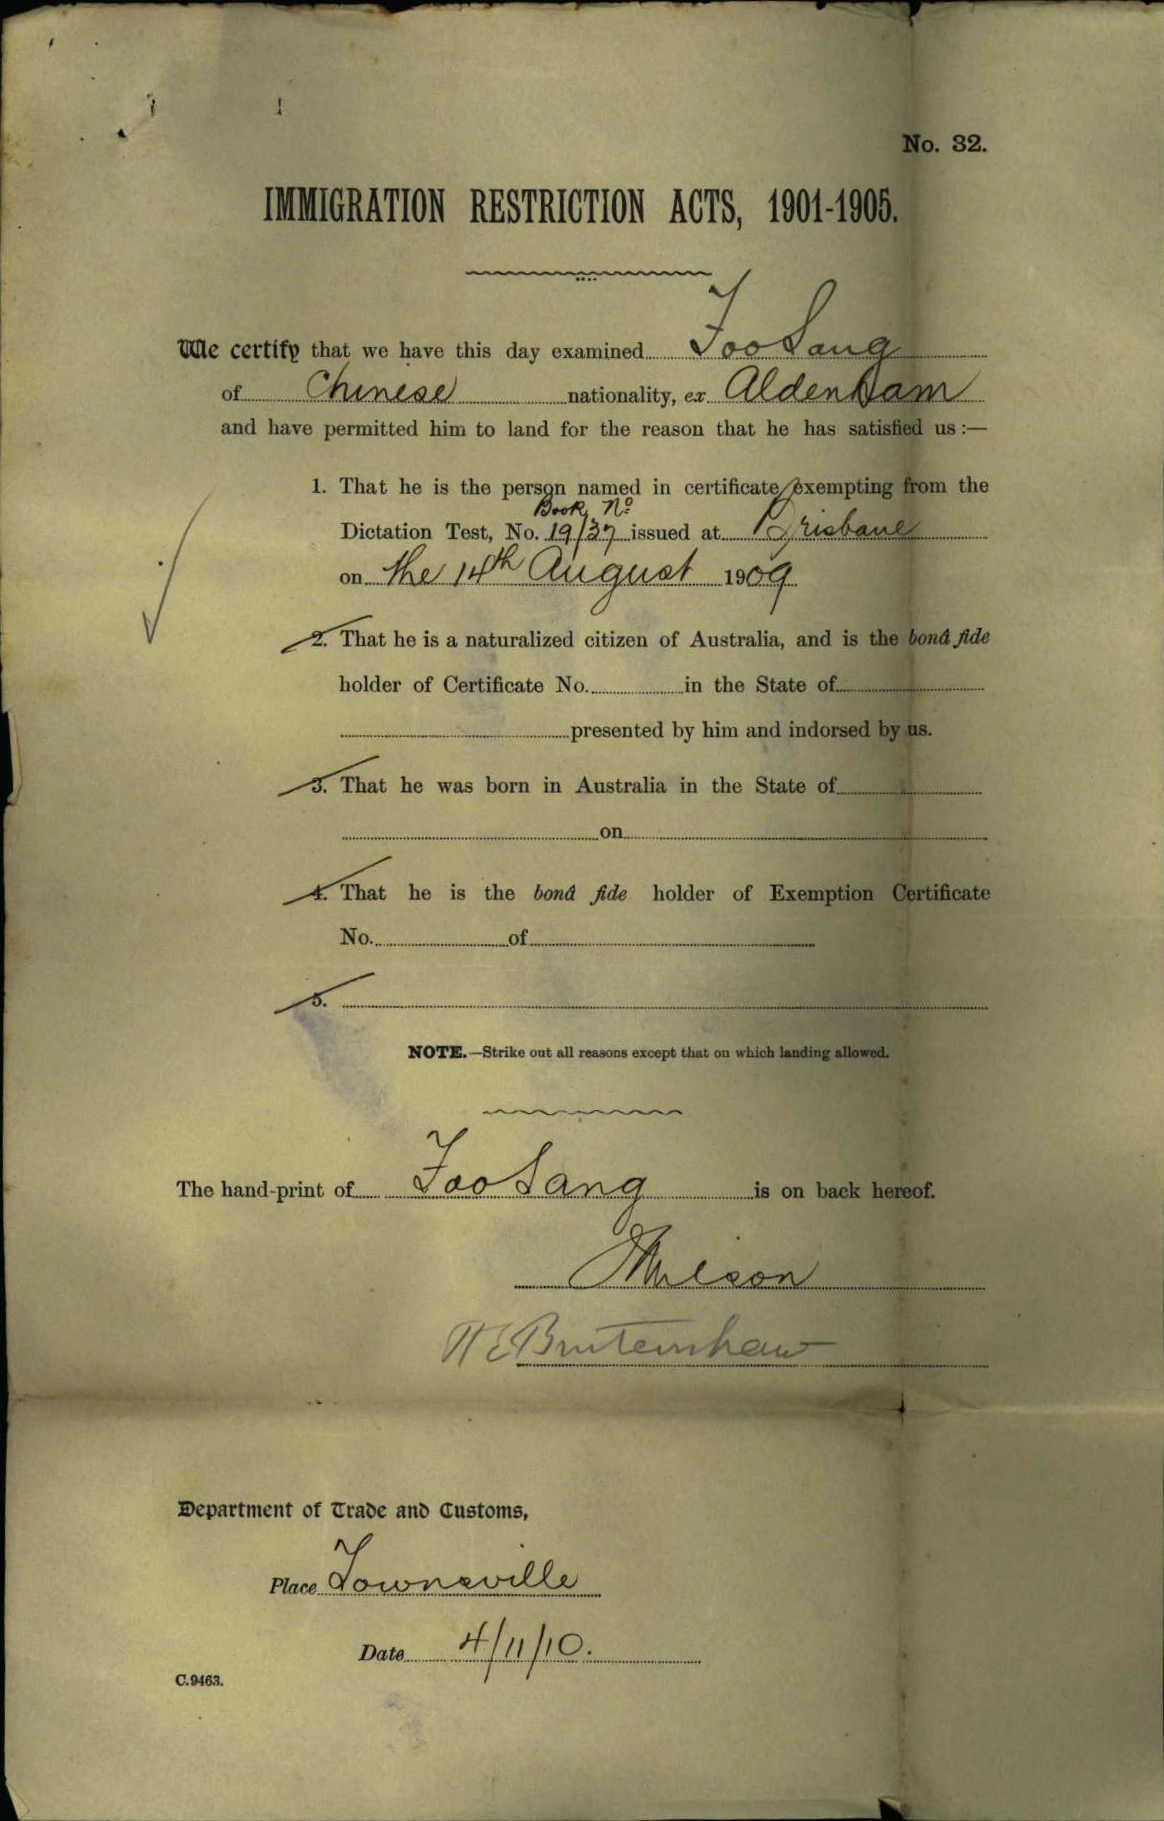 No. 32.
IMMIGRATION RESTRICTION ACTS, 1901-1905.
We certify that we have this day examined Foo Sang
of Chinese nationality, ex Aldenham
and have permitted him to land for the reason that he has satisfied us :—
1. That he is the person named in certificate exempting from the
Book No
Dictation Test, No. 19/37 issued at Brisbane
on the 14th August 1909
2. That he is a naturalized citizen of Australia, and is the bonâ fide
holder of Certificate No. in the State of
presented by him and indorsed by us.
3. That he was born in Australia in the State of
on
4. That he is the bonâ fide holder of Exemption Certificate
No. of
5.
NOTE.—Strike out all reasons except that on which landing allowed.
The hand-print of Foo Sang is on back hereof.
Department of Trade and Customs,
Place Townsville
Date 4/11/10.
C.9463.